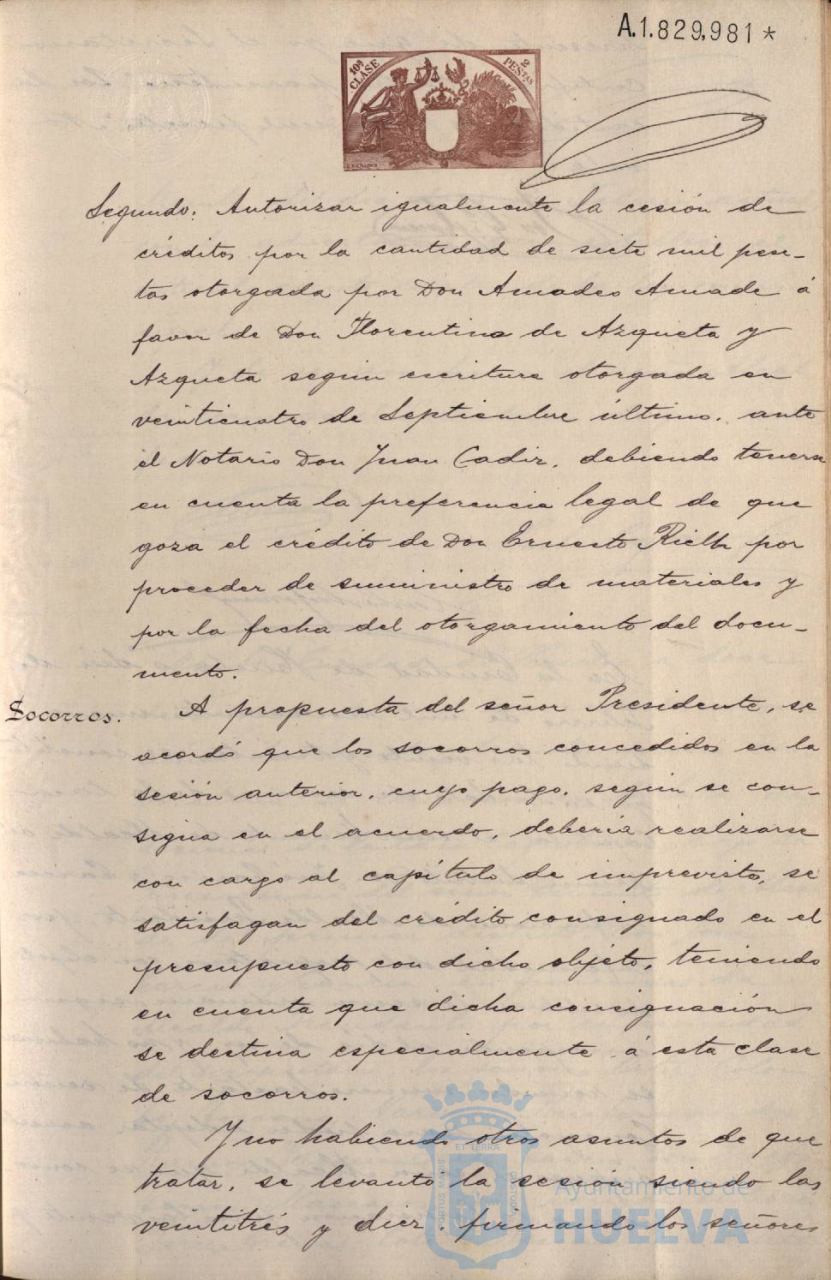 A.1.829,981 *
10ª CLASE 2 PESETAS
Segundo. Autorizar igualmente la cesión de
créditos por la cantidad de siete mil pese-
tas otorgada por Don Amadeo Amade á
favor de Don Florentino de Azqueta y
Azqueta según escritura otorgada en
veinticuatro de Septiembre último, ante
el Notario Don Juan Cadiz, debiendo tenerse
en cuenta la preferencia legal de que
goza el crédito de Don Ernesto por
proceder de suministro de materiales y
por la fecha del otorgamiento del docu-
mento.
Socorros. A propuesta del señor Presidente, se
acordó que los socorros concedidos en la
sesión anterior, cuyo pago, según se con-
signa en el acuerdo, debería realizarse
con cargo al capítulo de imprevisto, se
satisfagan del crédito consignado en el
presupuesto con dicho objeto, teniendo
en cuenta que dicha consignación
se destina especialmente á esta clase
de socorros.
Y no habiendo otros asuntos de que
tratar, se levantó la sesión siendo las
veintitrés y diez firmando los señores
Ayuntamiento de
HUELVA